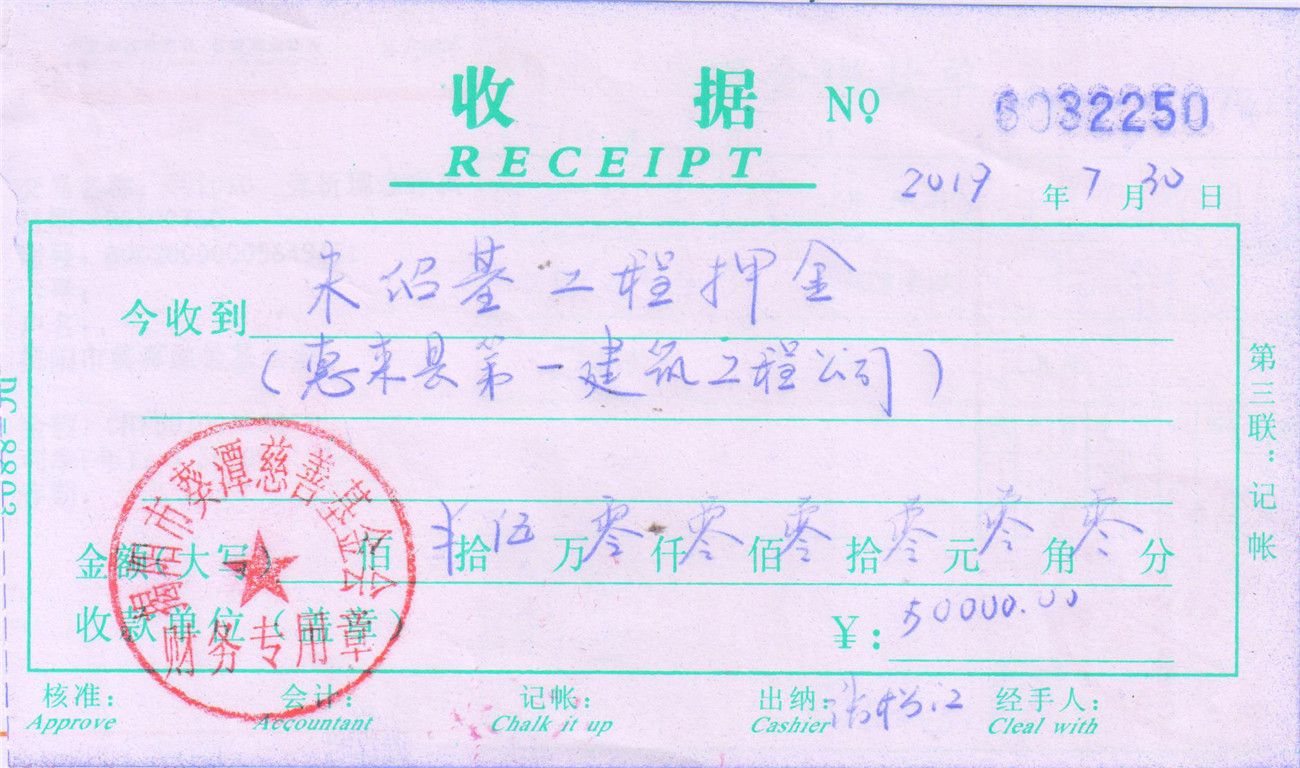 收 据 No 6032250
RECEIPT
2019 年 7 月 30 日
今收到 朱绍基工程押金
(惠来县第一建筑工程公司)
揭阳市葵潭慈善基金会
财务专用章
金额(大写) 佰 ¥ 拾 伍 万 零 仟 零 佰 零 拾 零 元 零 角 零 分
收款单位(盖章) ¥: 50000.00
第三联:记帐
核准: 会计: 记帐: 出纳: 经手人:
Approve Accountant Chalk it up Cashier Cleal with